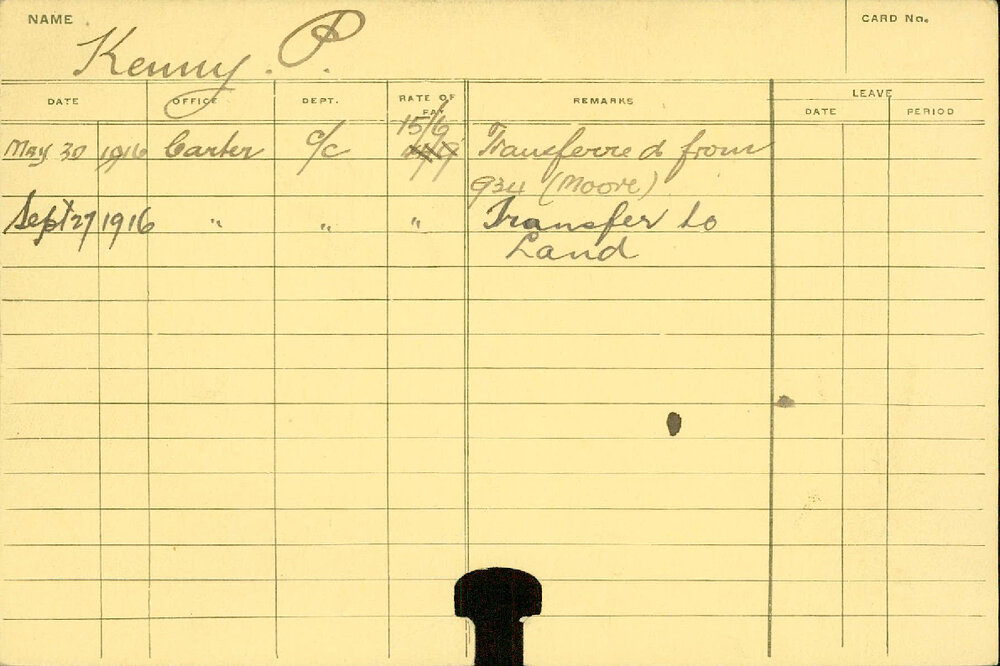 NAME
CARD No.
Kenny. P.
DATE OFFICE DEPT. RATE OF PAY REMARKS LEAVE
DATE PERIOD
15/6
May 30 1916 Carter C/C Transferred from
934 (Moore)
Sept 27 1916 " " " Transfer to
Land